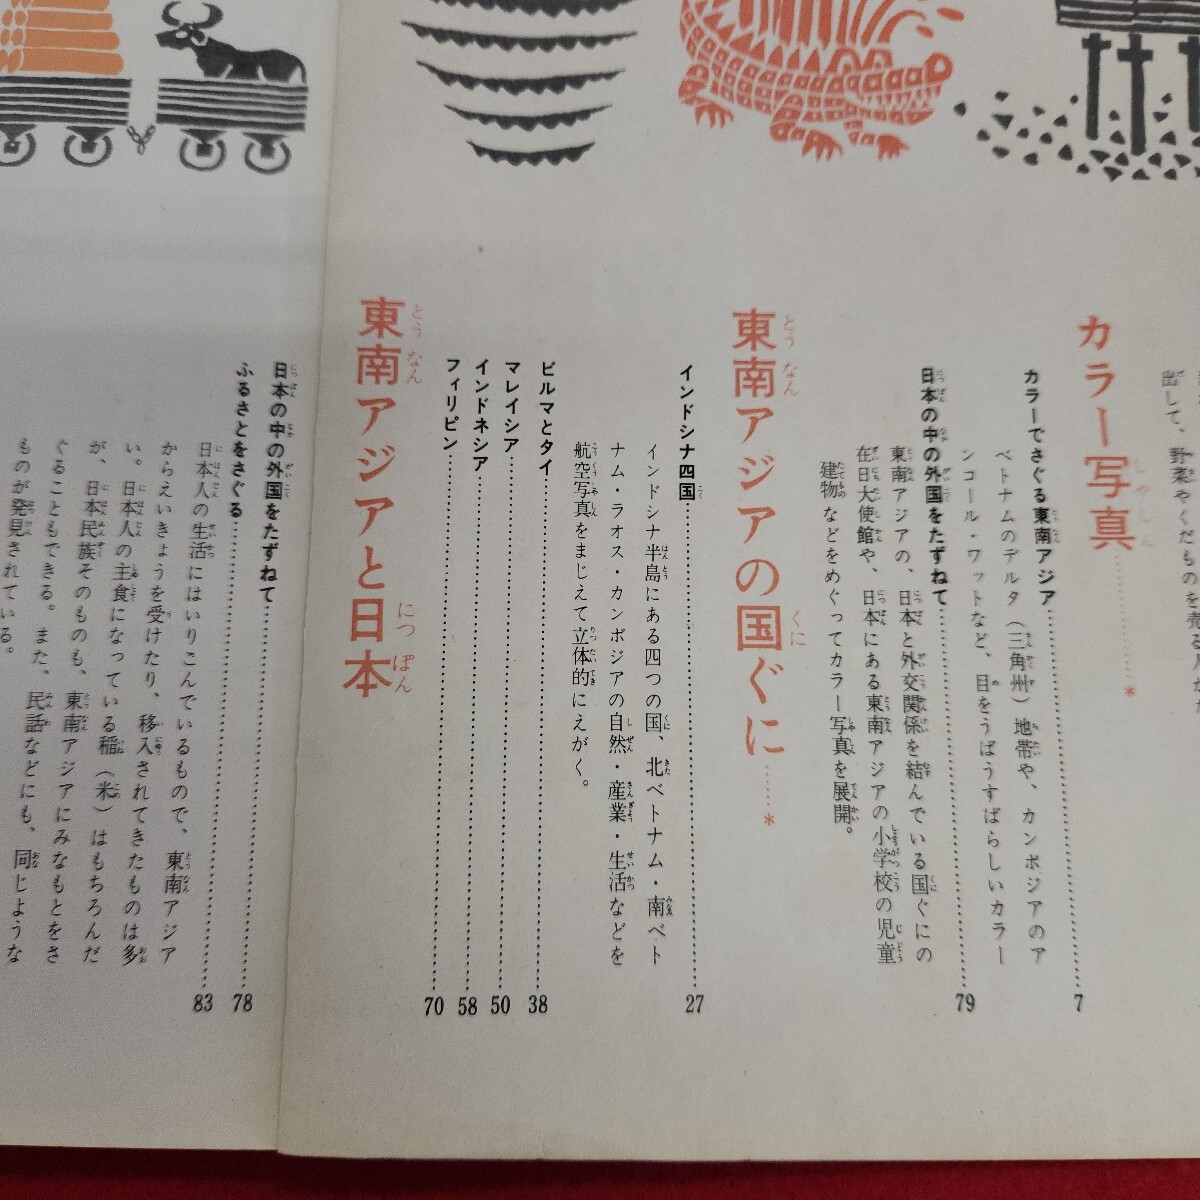 出して、野菜やくだものを売る人
カラー写真……*
カラーでさぐる東南アジア……7
ベトナムのデルタ（三角州）地帯や、カンボジアのア
ンコール・ワットなど、目をうばうすばらしいカラー
日本の中の外国をたずねて……79
東南アジアの、日本と外交関係を結んでいる国ぐにの
在日大使館や、日本にある東南アジアの小学校の児童
建物などをめぐってカラー写真を展開。
東南アジアの国ぐに……*
インドシナ四国……27
インドシナ半島にある四つの国、北ベトナム・南ベト
ナム・ラオス・カンボジアの自然・産業・生活などを
航空写真をまじえて立体的にえがく。
ビルマとタイ……38
マレイシア……50
インドネシア……58
フィリピン……70
東南アジアと日本
日本の中の外国をたずねて……78
ふるさとをさぐる……83
日本人の生活にはいりこんでいるもので、東南アジア
からえいきょうを受けたり、移入されてきたものは多
い。日本人の主食になっている稲（米）はもちろんだ
が、日本民族そのものも、東南アジアにみなもとをさ
ぐることもできる。また、民話などにも、同じような
ものが発見されている。